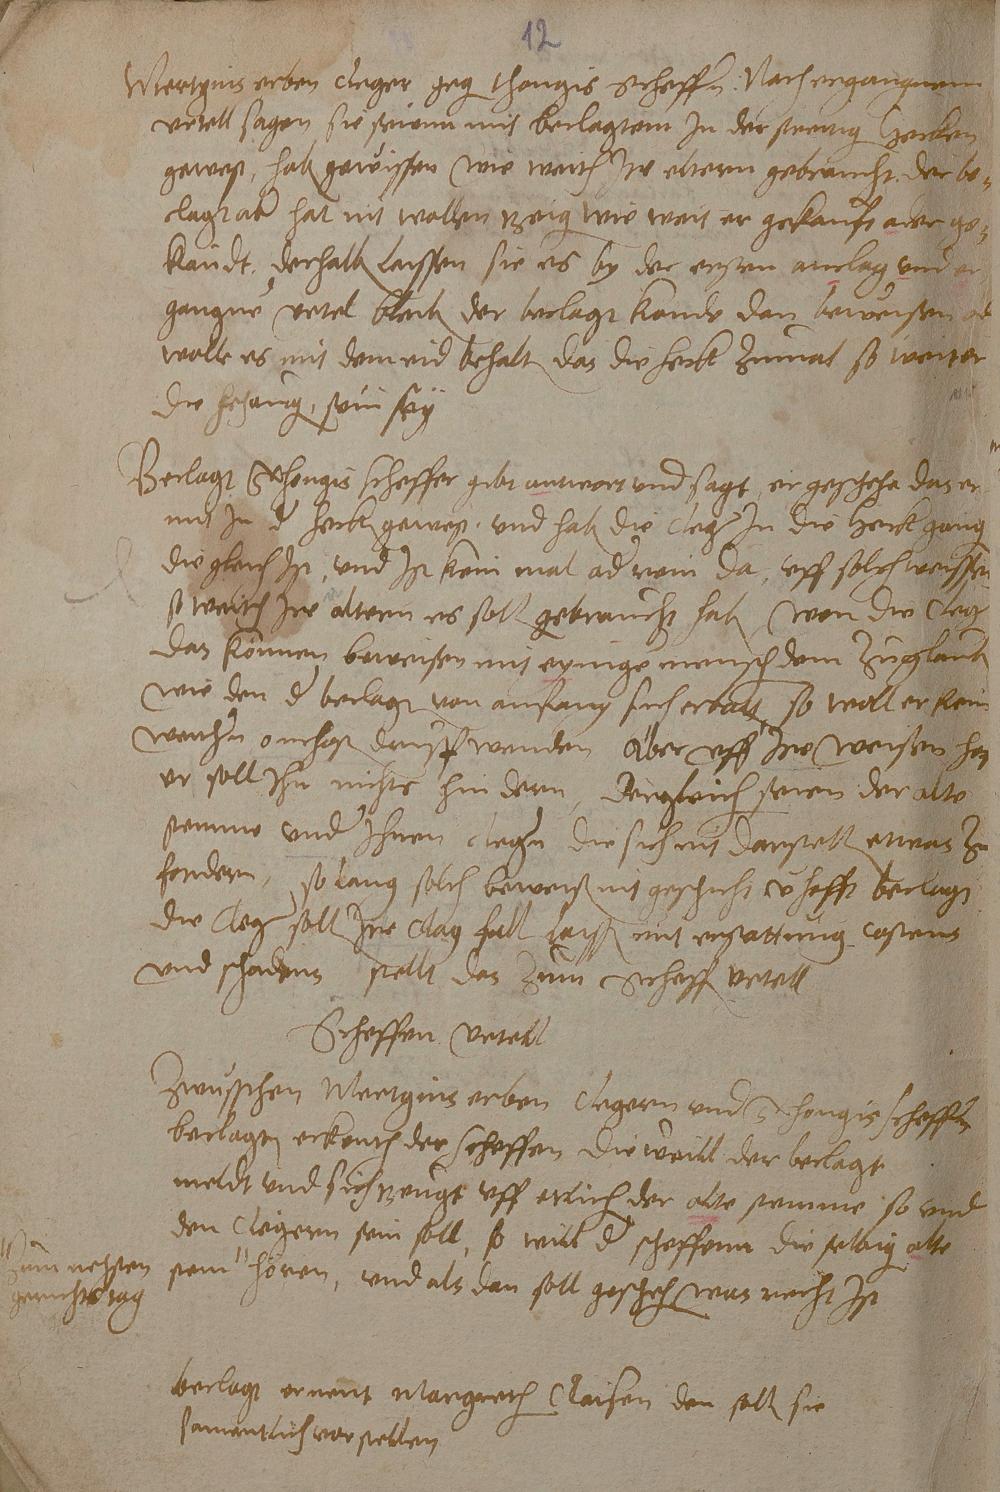 12
Mertgins erben cleger geg thongis scheffn: Nach ergangnem
urtell sagen sie seienn mit beclagtem In der streitig Hecken
gewest, hab gewissen wie weith Ire eltern gebraucht. der be-
clagt ab hat nit wollen zeig wie weit er gekauft ader ge-
kaudt. derhalb lassen sie es by der ersten anclag und er
gangne urtel bleib der beclagt konde dan beweisen ad
wolle es mit dem eid behalt das die heck zumal so weit er
die, sein sey
Beclagt Thongis scheffer gibt antwort und sagt, er gestehe das er
mit In d heck gewest. und hab die cleg In die Heck gang
die gleich Ist, und Ist kein mal ad rein da, uff solch weissen
so weith Ire altern es soll gebraucht hab, wen die cleg
das konnen beweisen mit eynige mensch dem zuglaub
wie den d beclagt von anfang sich erbatt, so woll er kein
druff wenden Aber uff Ire weisen hin
er soll Ihn nichts hindern, dergleich seien der alte
stemme und Ihnen clegn die sich nit darstell etwas zu
fordern, so lang solch beweis nit geschicht v hofft beclagt
die cleg soll Ire clag fall lass mit erstattung costens
und schadens stellt das zum scheff urtell
Scheffen urtell
Zwusschen Mertgins erben clegern und Thongis scheffn
beclagt erkenth der scheffen die weill der beclagt
meldt und sich zeugt uff etlich der alte stemme so und
den clegern sein soll, so will d scheffenn die selbig alte
stem" horen, und als dan soll gescheh was recht Ist
"Zum nehsten
gerichtstag
beclagt ernent Margreth Claisen den soll sie
samentlich vorstellen